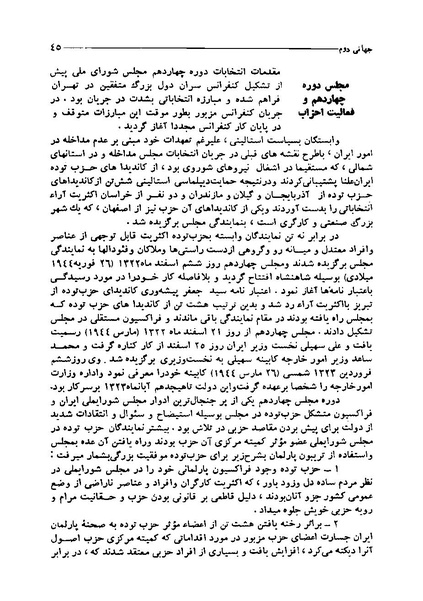 جهانی دوم ۴۵
مجلس دوره
چهاردهم و
فعالیت احزاب
مقدمات انتخابات دوره چهاردهم مجلس شورای ملی پیش
از تشکیل کنفرانس سران دول بزرگ متفقین در تهران
فراهم شده و مبارزه انتخاباتی بشدت در جریان بود . در
جریان کنفرانس مزبور بطور موقت این مبارزات متوقف و
در پایان کار کنفرانس مجددا آغاز گردید .
وابستگان بسیاست استالینی ، علیرغم تعهدات خود مبنی بر عدم مداخله در
امور ایران ، باطرح نقشه های قبلی در جریان انتخابات مجلس مداخله و در استانهای
شمالی ، که مستقیما در اشغال نیروهای شوروی بود ، از کاندیدا های حزب توده
ایران‌علنا پشتیبانی‌کردند ودرنتیجه حمایت‌دیپلماسی استالینی شش‌تن ازکاندیداهای
حزب توده از آذربایجان و گیلان و مازندران و دو نفر از خراسان اکثریت آراء
انتخاباتی را بدست آوردند ویکی از کاندیداهای آن حزب نیز از اصفهان ، که یك شهر
بزرگ صنعتی و کارگری است ، بنمایندگی مجلس برگزیده شد .
در برابر نه تن نمایندگان وابسته بحزب‌توده اکثریت قابل توجهی از عناصر
وافراد معتدل و میانه رو وگروهی ازدست راستی‌ها وملاکان و فئودالها به نمایندگی
مجلس برگزیده شدند ومجلس چهاردهم روز ششم اسفند ماه۱۳۲۲ (۲۶ فوریه۱۹۴۴
میلادی) بوسیله شاهنشاه افتتاح گردید و بلافاصله کار خودرا در مورد رسیدگی
باعتبار نامه‌ها آغاز نمود . اعتبار نامه سید جعفر پیشه‌وری کاندیدای حزب‌توده از
تبریز بااکثریت آراء رد شد و بدین ترتیب هشت تن از کاندیدا های حزب توده که
بمجلس راه یافته بودند در مقام نمایندگی باقی ماندند و فراکسیون مستقلی در مجلس
تشکیل دادند . مجلس چهاردهم از روز ۲۱ اسفند ماه ۱۳۲۲ (مارس ۱۹۴۴) رسمیت
یافت و علی سهیلی نخست وزیر ایران روز ۲۵ اسفند از کار کناره گرفت و محمد
ساعد وزیر امور خارجه کابینه سهیلی به نخست‌وزیری برگزیده شد. وی روزششم
فروردین ۱۳۲۳ شمسی (۲۶ مارس ۱۹۴۴) کابینه خودرا معرفی نمود واداره وزارت
امورخارجه را شخصا برعهده گرفت‌واین دولت تاهیجدهم آبانماه۱۳۲۳ برسرکار بود.
دوره مجلس چهاردهم یکی از پر جنجال‌ترین ادوار مجلس شورایملی ایران و
فراکسیون متشکل حزب‌توده در مجلس بوسیله استیضاح و سئوال و انتقادات شدید
از دولت برای پیش بردن مقاصد حزبی در تلاش بود . بیشتر نمایندگان حزب توده در
مجلس شورایملی عضو مؤثر کمیته مرکزی آن حزب بودند وراه یافتن آن عده بمجلس
واستفاده از تریبون پارلمان بشرح‌زیر برای حزب‌توده موفقیت بزرگی‌بشمار میرفت :
۱ – حزب توده وجود فراکسیون پارلمانی خود را در مجلس شورایملی در
نظر مردم ساده دل وزود باور ، که اکثریت کارگران وافراد و عناصر ناراضی از وضع
عمومی کشور جزو آنان‌بودند ، دلیل قاطعی بر قانونی بودن حزب و حقانیت مرام و
رویه حزبی خویش جلوه میداد .
۲ – براثر رخنه یافتن هشت تن از اعضاء مؤثر حزب توده به صحنهٔ پارلمان
ایران جسارت اعضای حزب مزبور در مورد اقداماتی که کمیته مرکزی حزب اصول
آنرا دیکته می‌کرد ، افزایش یافت و بسیاری از افراد حزبی معتقد شدند که ، در برابر